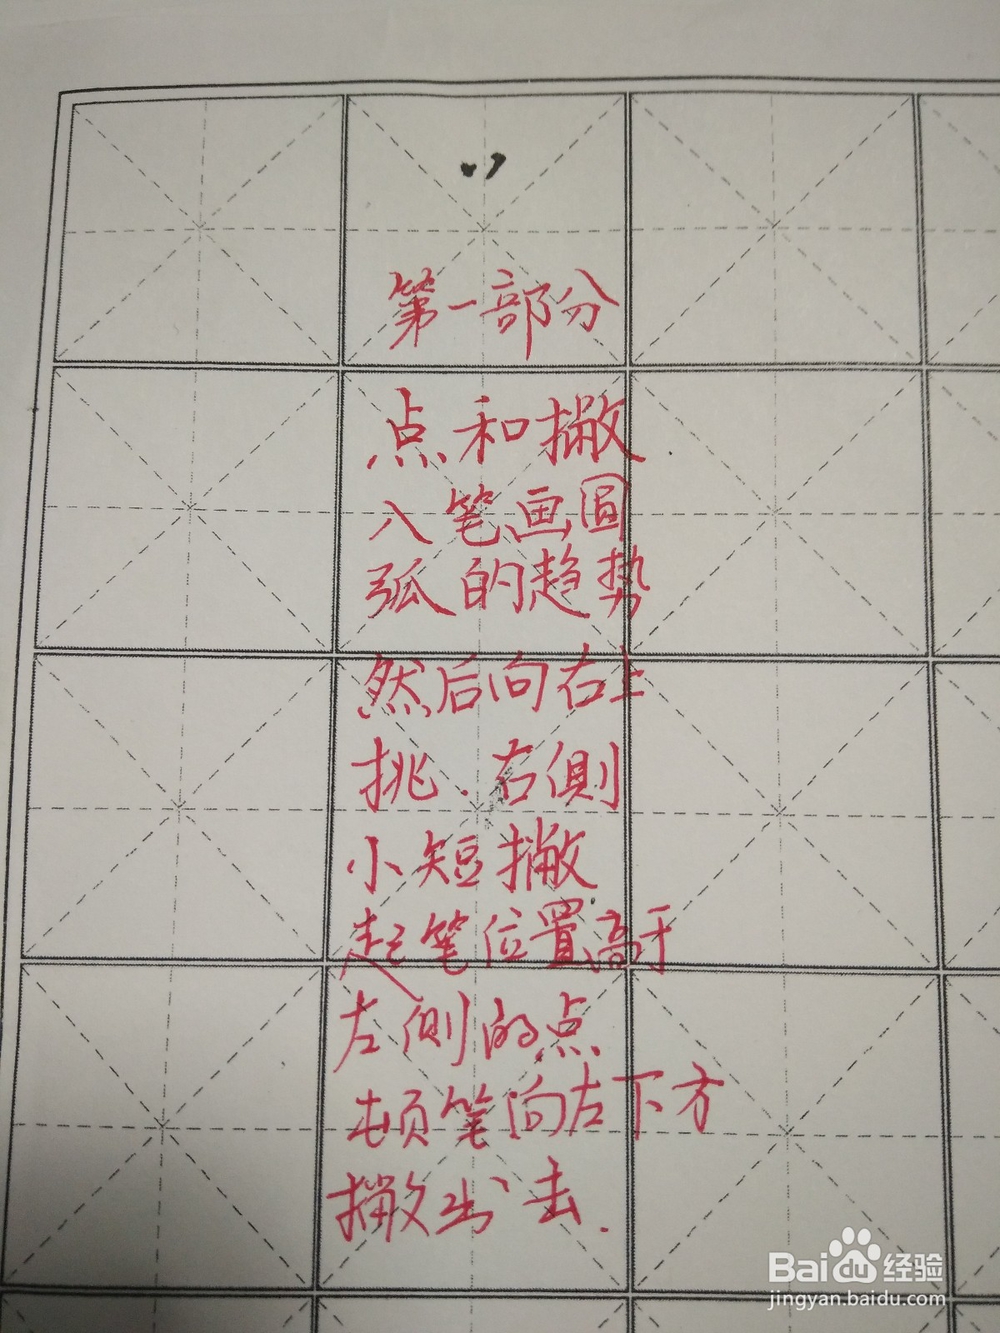 第一部分
点和撇
入笔画圆
弧的趋势
然后向右上
挑.右侧
小短撇
起笔位置高于
左侧的点
顿笔向左下方
撇出去.
Baidu经验
jingyan.baidu.com